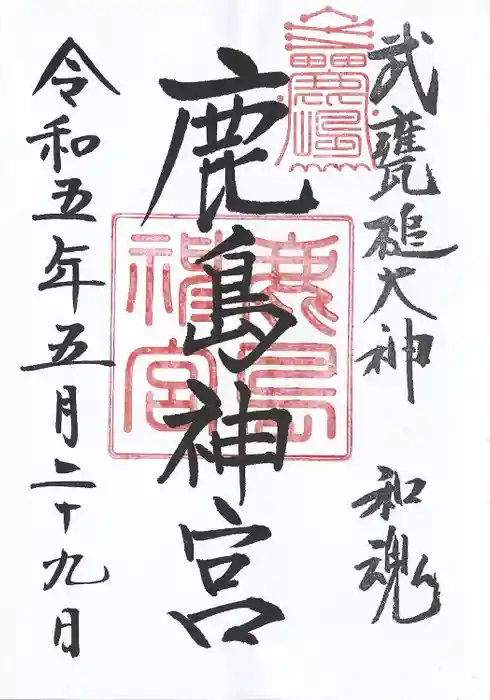 武甕槌大神　和魂
鹿島神宮
鹿島神宮
令和五年五月二十九日